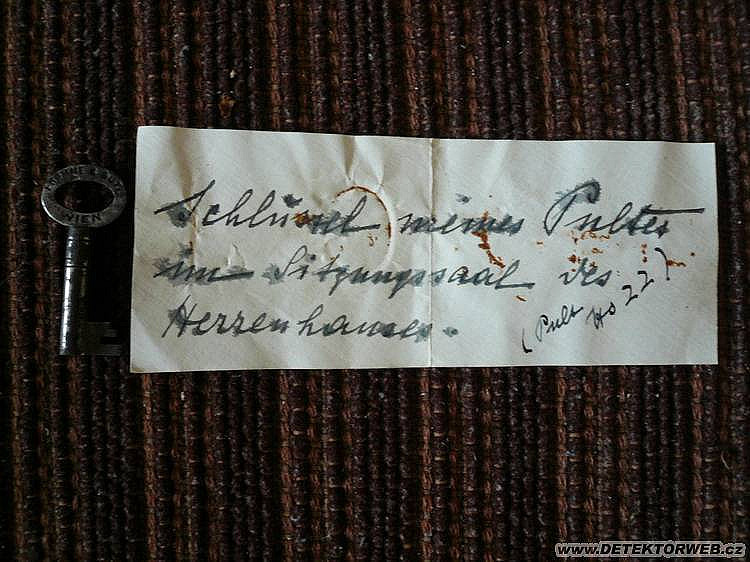 WIEN
Schlüssel meines Pultes
im Sitzungssaal des
Herrenhauses.
(Pult No 22)
www.DETEKTORWEB.cz